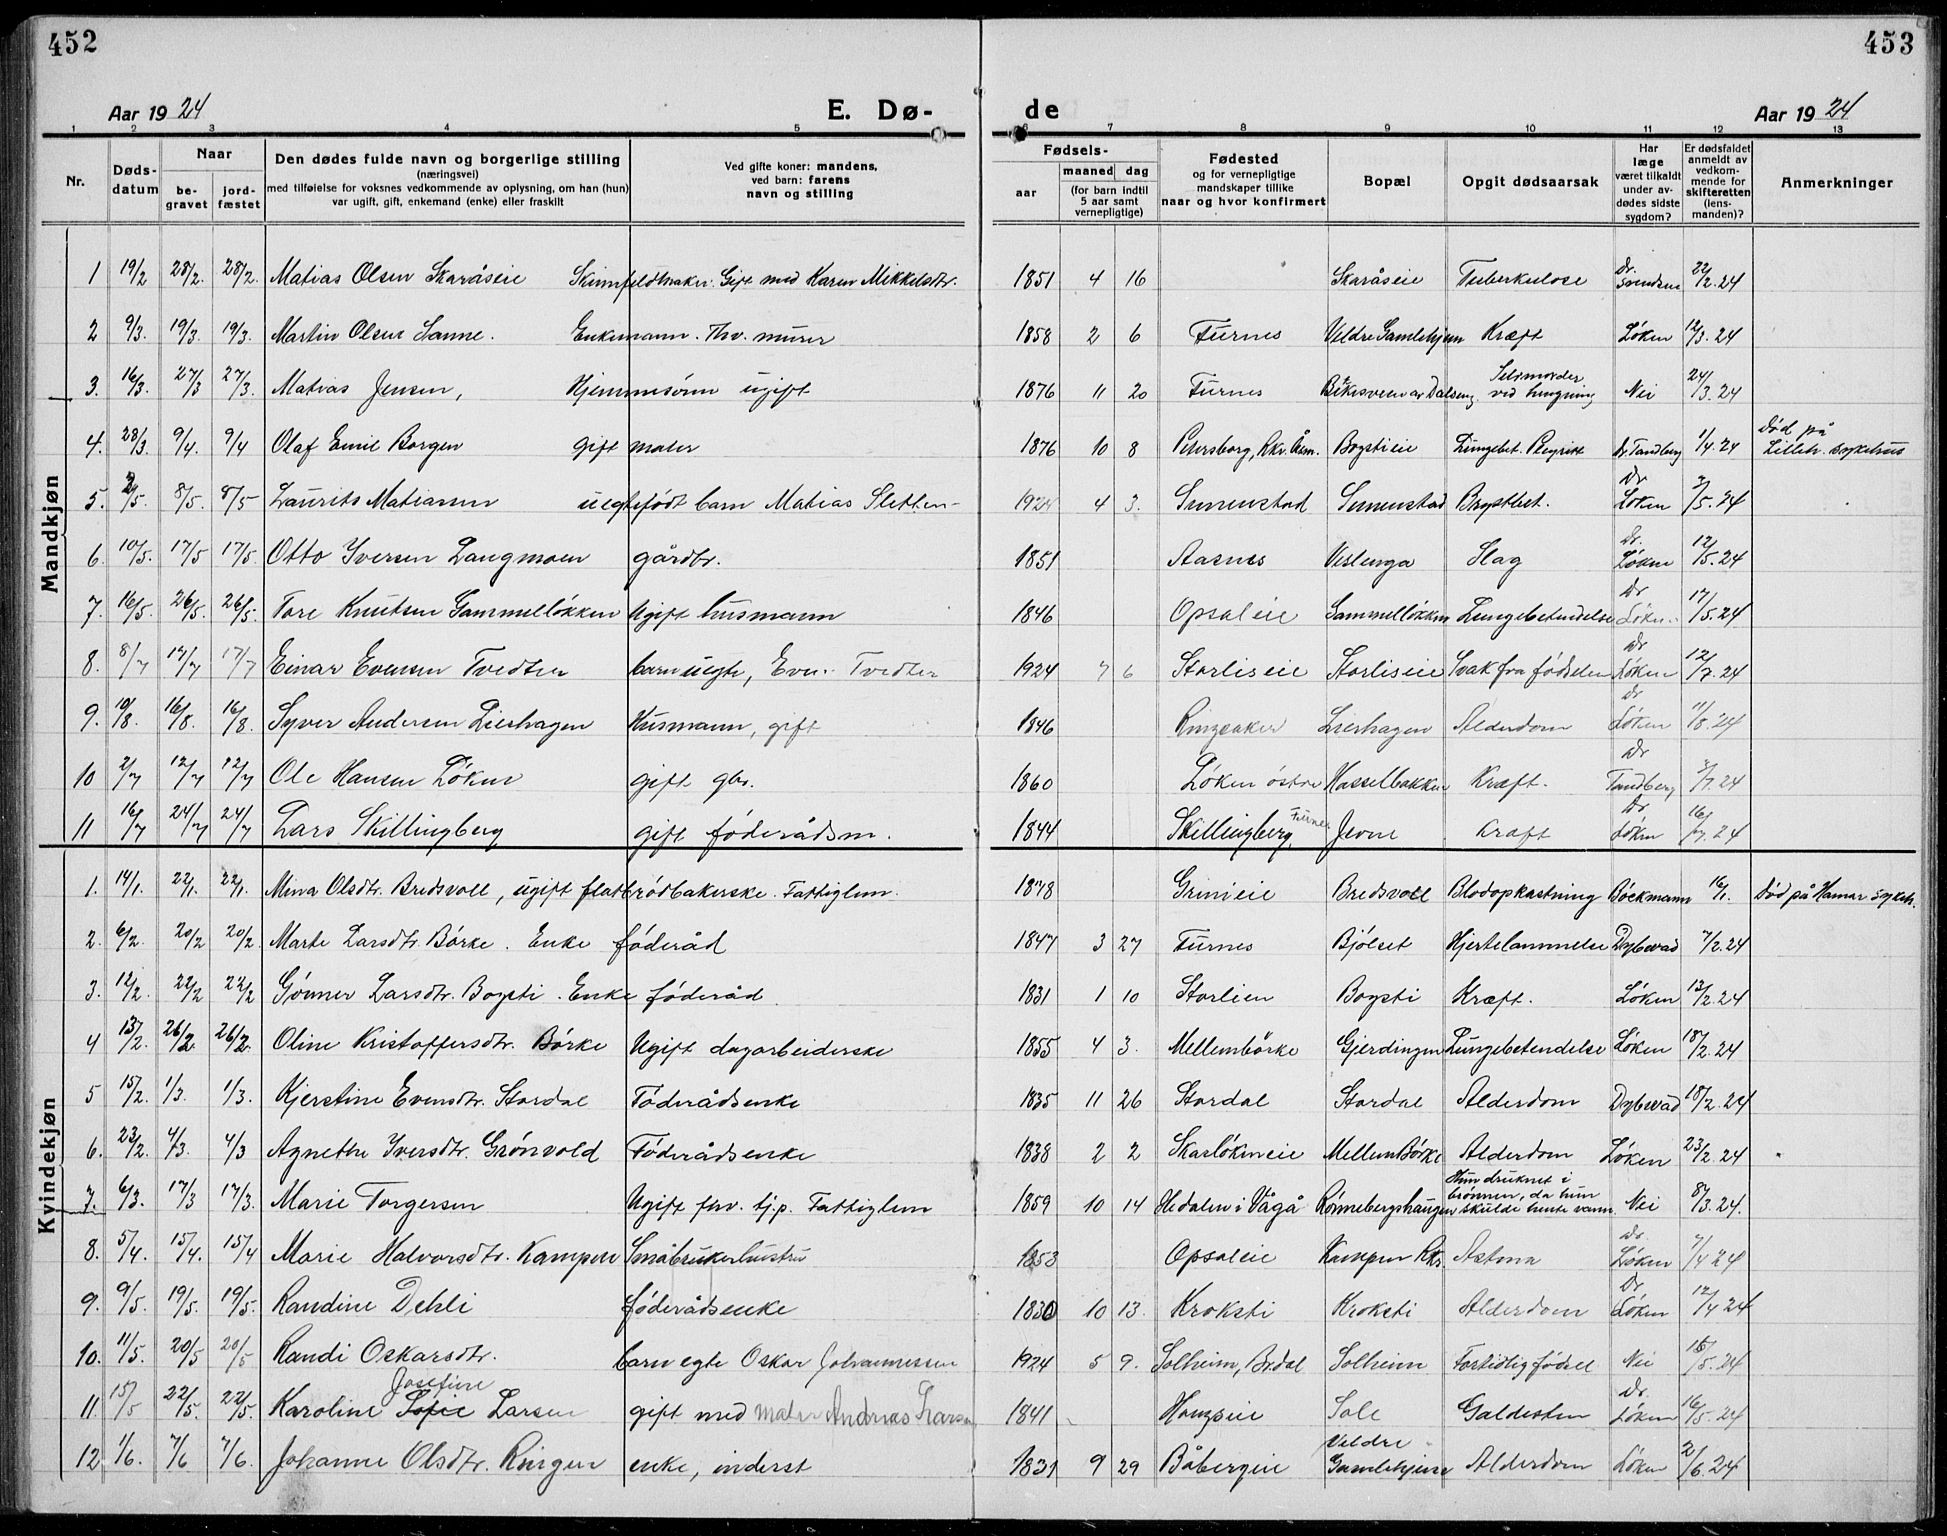 452
453
Aar 1924
E. Dø-
de
Aar 1924
1 2 3 4 5 6 7 8 9 10 11 12 13
Nr.
Døds-
datum
Naar
be-
gravet
jord-
fæstet
Den dødes fulde navn og borgerlige stilling
(næringsvei)
med tilføielse for voksnes vedkommende av oplysning, om han (hun)
var ugift, gift, enkemand (enke) eller fraskilt
Ved gifte koner: mandens,
ved barn: farens
navn og stilling
Fødsels-
aar
maaned dag
(for barn indtil
5 aar samt
vernepligtige)
Fødested
og for vernepligtige
mandskaper tillike
naar og hvor konfirmert
Bopæl
Opgit dødsaarsak
Har
læge
været tilkaldt
under av-
dødes sidste
sygdom?
Er dødsfaldet
anmeldt av
vedkom-
mende for
skifteretten
(lens-
manden)?
Anmerkninger
Mandkjøn
1 19/2 28/2. 28/2. Matias Olsen Skaråseie Skinnfeldtmaker. Gift med Karen Mikkelsdtr. 1851 4 16 Skaråseie Tuberkulose Dr. Svendsen 22/2.24
2 9/3. 19/3. 19/3. Martin Olsen Sanne. Enkemann. Fhv. murer 1858 2 6 Furnes Veldre Gamlehjem Kræft Løken 12/3.24
3. 16/3. 27/3 27/3. Matias Jensen, Hjemmesønn ugift 1876 11 20 Furnes Selvmorder ved hengning Nei 24/3.24
4. 28/3. 9/4. 9/4 Olaf Emil Borgen gift maler 1876 10 8 Petersborg, Rkr. Bogstieie Lungebet. Pleyritt Dr. Tandberg 1/4.24 Død på Lilleh. sykehus
5. 2/5. 8/5. 8/5 Laurits Matiassen uegtefødt barn Matias Sletten 1924 4 3. Simenstad Simenstad Brystbet. Dr Løken 2/5.24
6. 10/5. 17/5 17/5. Otto Iversen Langmoen gårdbr. 1851 Aasnes Veslenga Slag Dr. Løken 12/5.24
7. 16/5. 26/5. 26/5. Tore Knutsen Gammelløkken Ugift husmann 1846 Opsaleie Gammelløkken Lungebetendelse Dr Løken 17/5.24
8. 8/7 17/7 17/7 Einar Evensen Tvedter barn uegte, Even Tvedter 1924 7 6 Storliseie Storliseie Svak fra fødselen Dr Løken 12/7.24
9. 10/8. 16/8. 16/8. Syver Andersen Lierhagen Husmann, gift 1846 Ringsaker Lierhagen Alderdom Dr Løken 11/8.24
10 2/7 12/7 12/7 Ole Hansen Løken gift gbr. 1860 Løken østre Hasselbakken Kræft. Dr Tandberg 3/7.24
11 16/7 24/7 24/7 Lars Skillingberg gift føderådsm. 1844 Skillingberg, Furnes Jevne Kræft Dr Løken 16/7.24
Kvindekjøn
1. 14/1. 22/1. 22/1. Mina Olsdtr. Bredsvoll, ugift flatbrødbakerske. Fattiglem. 1878 Grinieie Bredsvoll Blodopkastning Böckmann 16/1. Død på Hamar sykeh.
2. 6/2. 20/2 20/2 Marte Larsdtr. Børke. Enke føderåd 1847 3 27 Furnes Bjølset Hjertelammelse Dybwad 7/2.24
3. 12/2. 22/2 22/2 Gønner Larsdtr. Bogsti. Enke føderåd 1831 1 10 Storlien Bogsti Kræft. Løken 13/2.24
4 13/2. 26/2. 26/2. Oline Kristoffersdtr. Børke Ugift dagarbeiderske 1855 4 3. Mellembörke Gjerdingen Lungebetendelse Løken 18/2.24
5 15/2. 1/3. 1/3. Kjerstine Evensdtr. Stordal Føderådsenke 1835 11 26 Stordal Stordal Alderdom Dybwad 18/2.24
6. 23/2. 4/3. 4/3 Agnethe Iversdtr. Grønvold Føderådsenke 1838 2 2 Skarløkeneie Mellem Børke Alderdom Løken 23/2.24
7. 6/3. 17/3 17/3. Marie Torgersen Ugift fhv. tj.p. Fattiglem 1859 10 14 Hedalen i Vågå Rønnebergshaugen Hun druknet i brønnen, da hun skulde hente vann Nei 8/3.24.
8. 5/4. 15/4. 15/4 Marie Halvorsdtr. Kampen Småbrukerhustru 1853 Opsaleie Kampen Rkr. Astma Dr. Løken 7/4 24
9. 9/5. 19/5. 19/5. Randine Dehli føderådsenke 1830 10 13. Kroksti Kroksti Alderdom Dr Løken 12/4 24
10. 11/5. 20/5 20/5 Randi Oskarsdtr. barn egte Oskar Johannessen 1924 5 9. Solheim, Br.dal Solheim Fortidlig fødsel Nei 15/5.24
11. 15/5 22/5. 22/5. Karoline Sofie Josefine Larsen gift med maler Andreas Larsen 1841 Sole Galdesten Dr. Løken 16/5.24
12 1/6. 7/6 7/6. Johanne Olsdtr. Ringen enke, inderst 1831 9 29 Båbergeie Veldre Gamlehjem Alderdom Løken 2/6.24